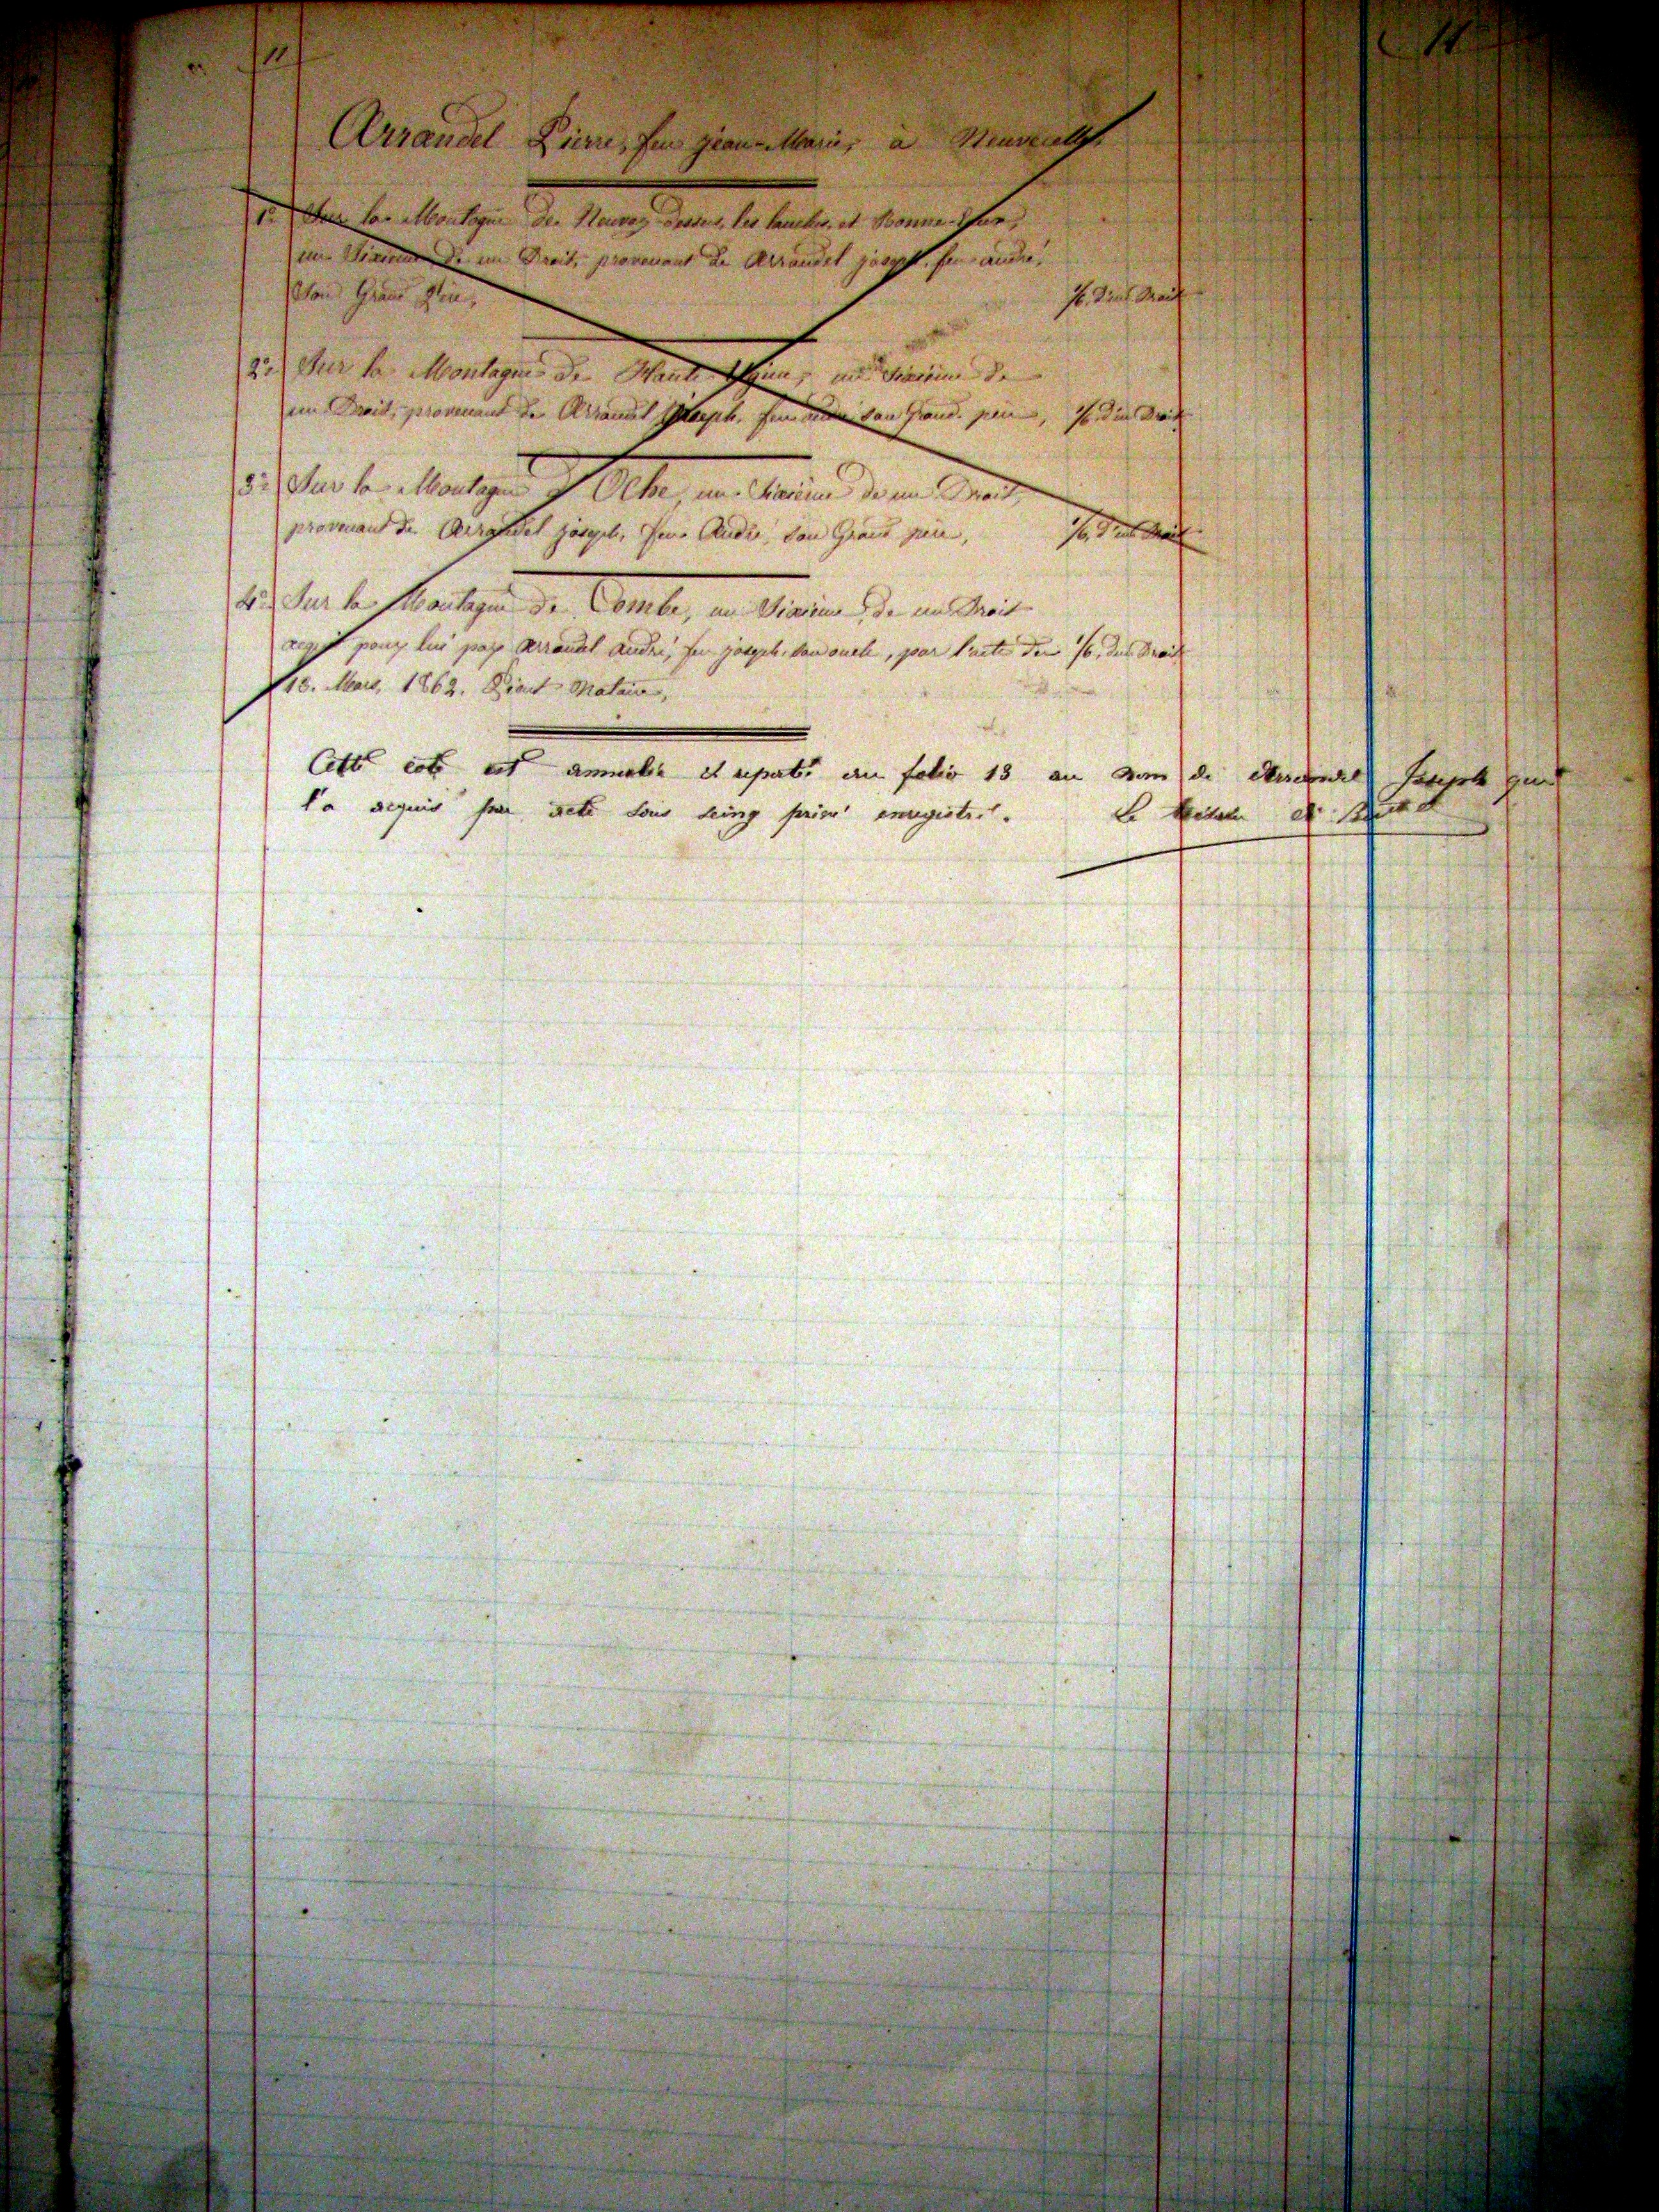 11
11
Arrandel Pierre, feu jean-Marie, à Neuvecelle
1º Sur la Montagne de Neuvaz dessus, les lanches, et Bonne
un Sixième de un Droit, provenant de Arrandel joseph, feu andré,
Son Grand Père, 1/6, d'un Droit
2º Sur la Montagne de Haute, un Sixième de
un Droit, provenant de Arrandel Joseph, feu andré son Grand père, 1/6, d'un Droit
3º Sur la Montagne d'Oche, un Sixième de un Droit,
provenant de Arrandel joseph, feu André, son Grand père, 1/6, d'un Droit
4º Sur la Montagne de Combe, un Sixième de un Droit
acquis pour lui par Arrandel André, feu joseph, son oncle, par l'acte du 1/6, d'un Droit
18. Mars, 1862. Notaire,
Cette cote est annulée et reportée au folio 13 au nom de Arrandel Joseph qui
l'a acquis par acte sous seing privé enregistré. Le